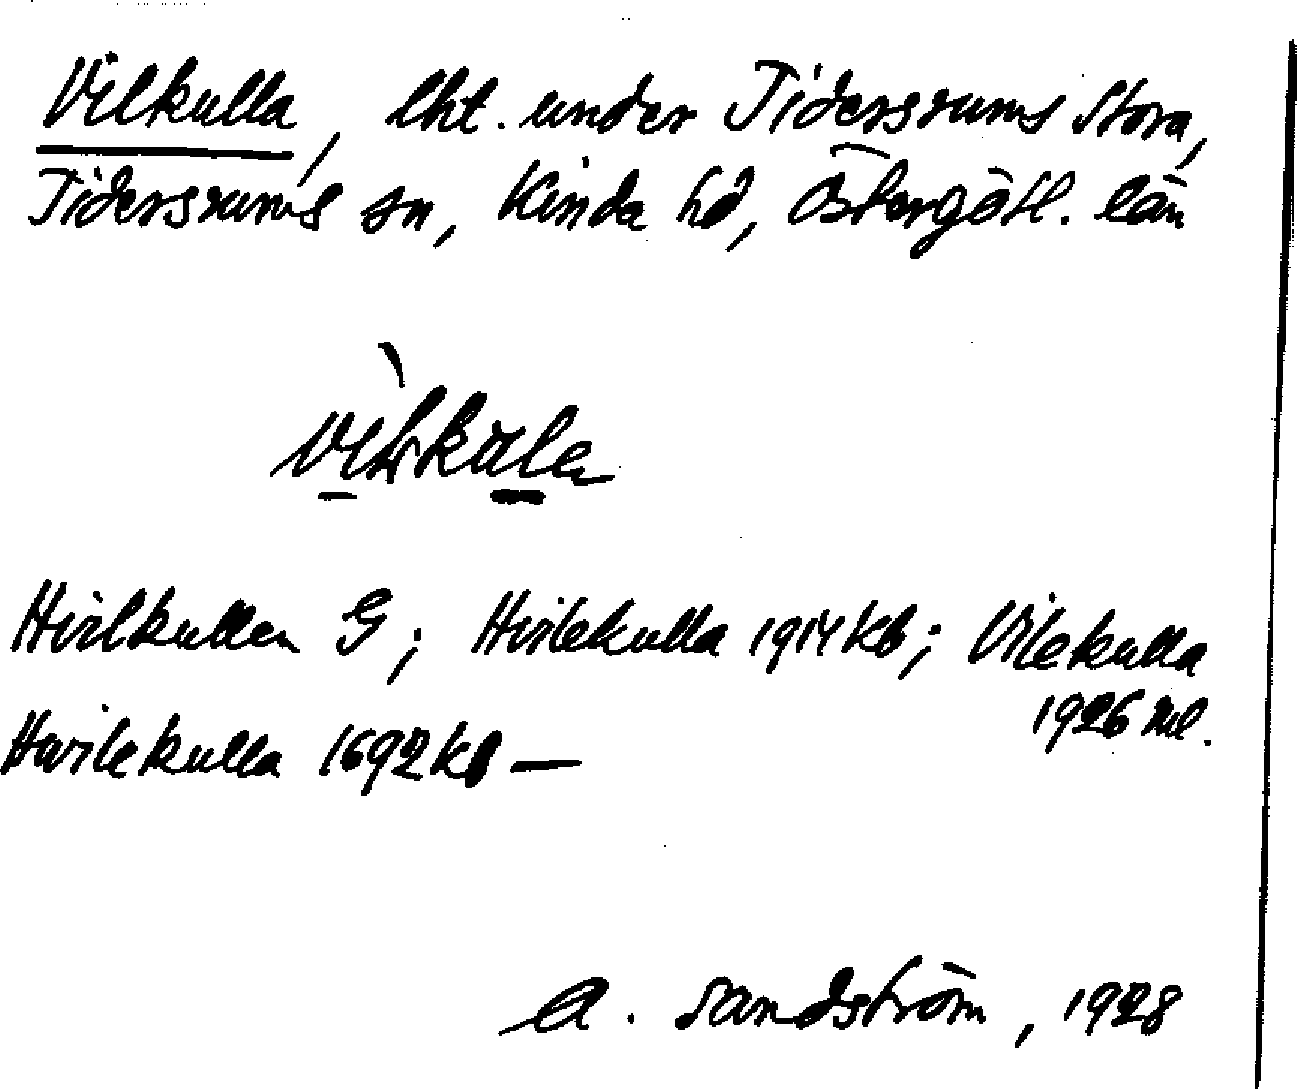 Vilkulla, lht. under Tidersrums Stora,
Tidersrums sn, Kinda hd, Östergötl. län
Hvilkullen G; Hvilekulla 1914 kb; Vilekulla
1926 ml.
Havilekulla 1692 kb —
A. Sandström, 1928